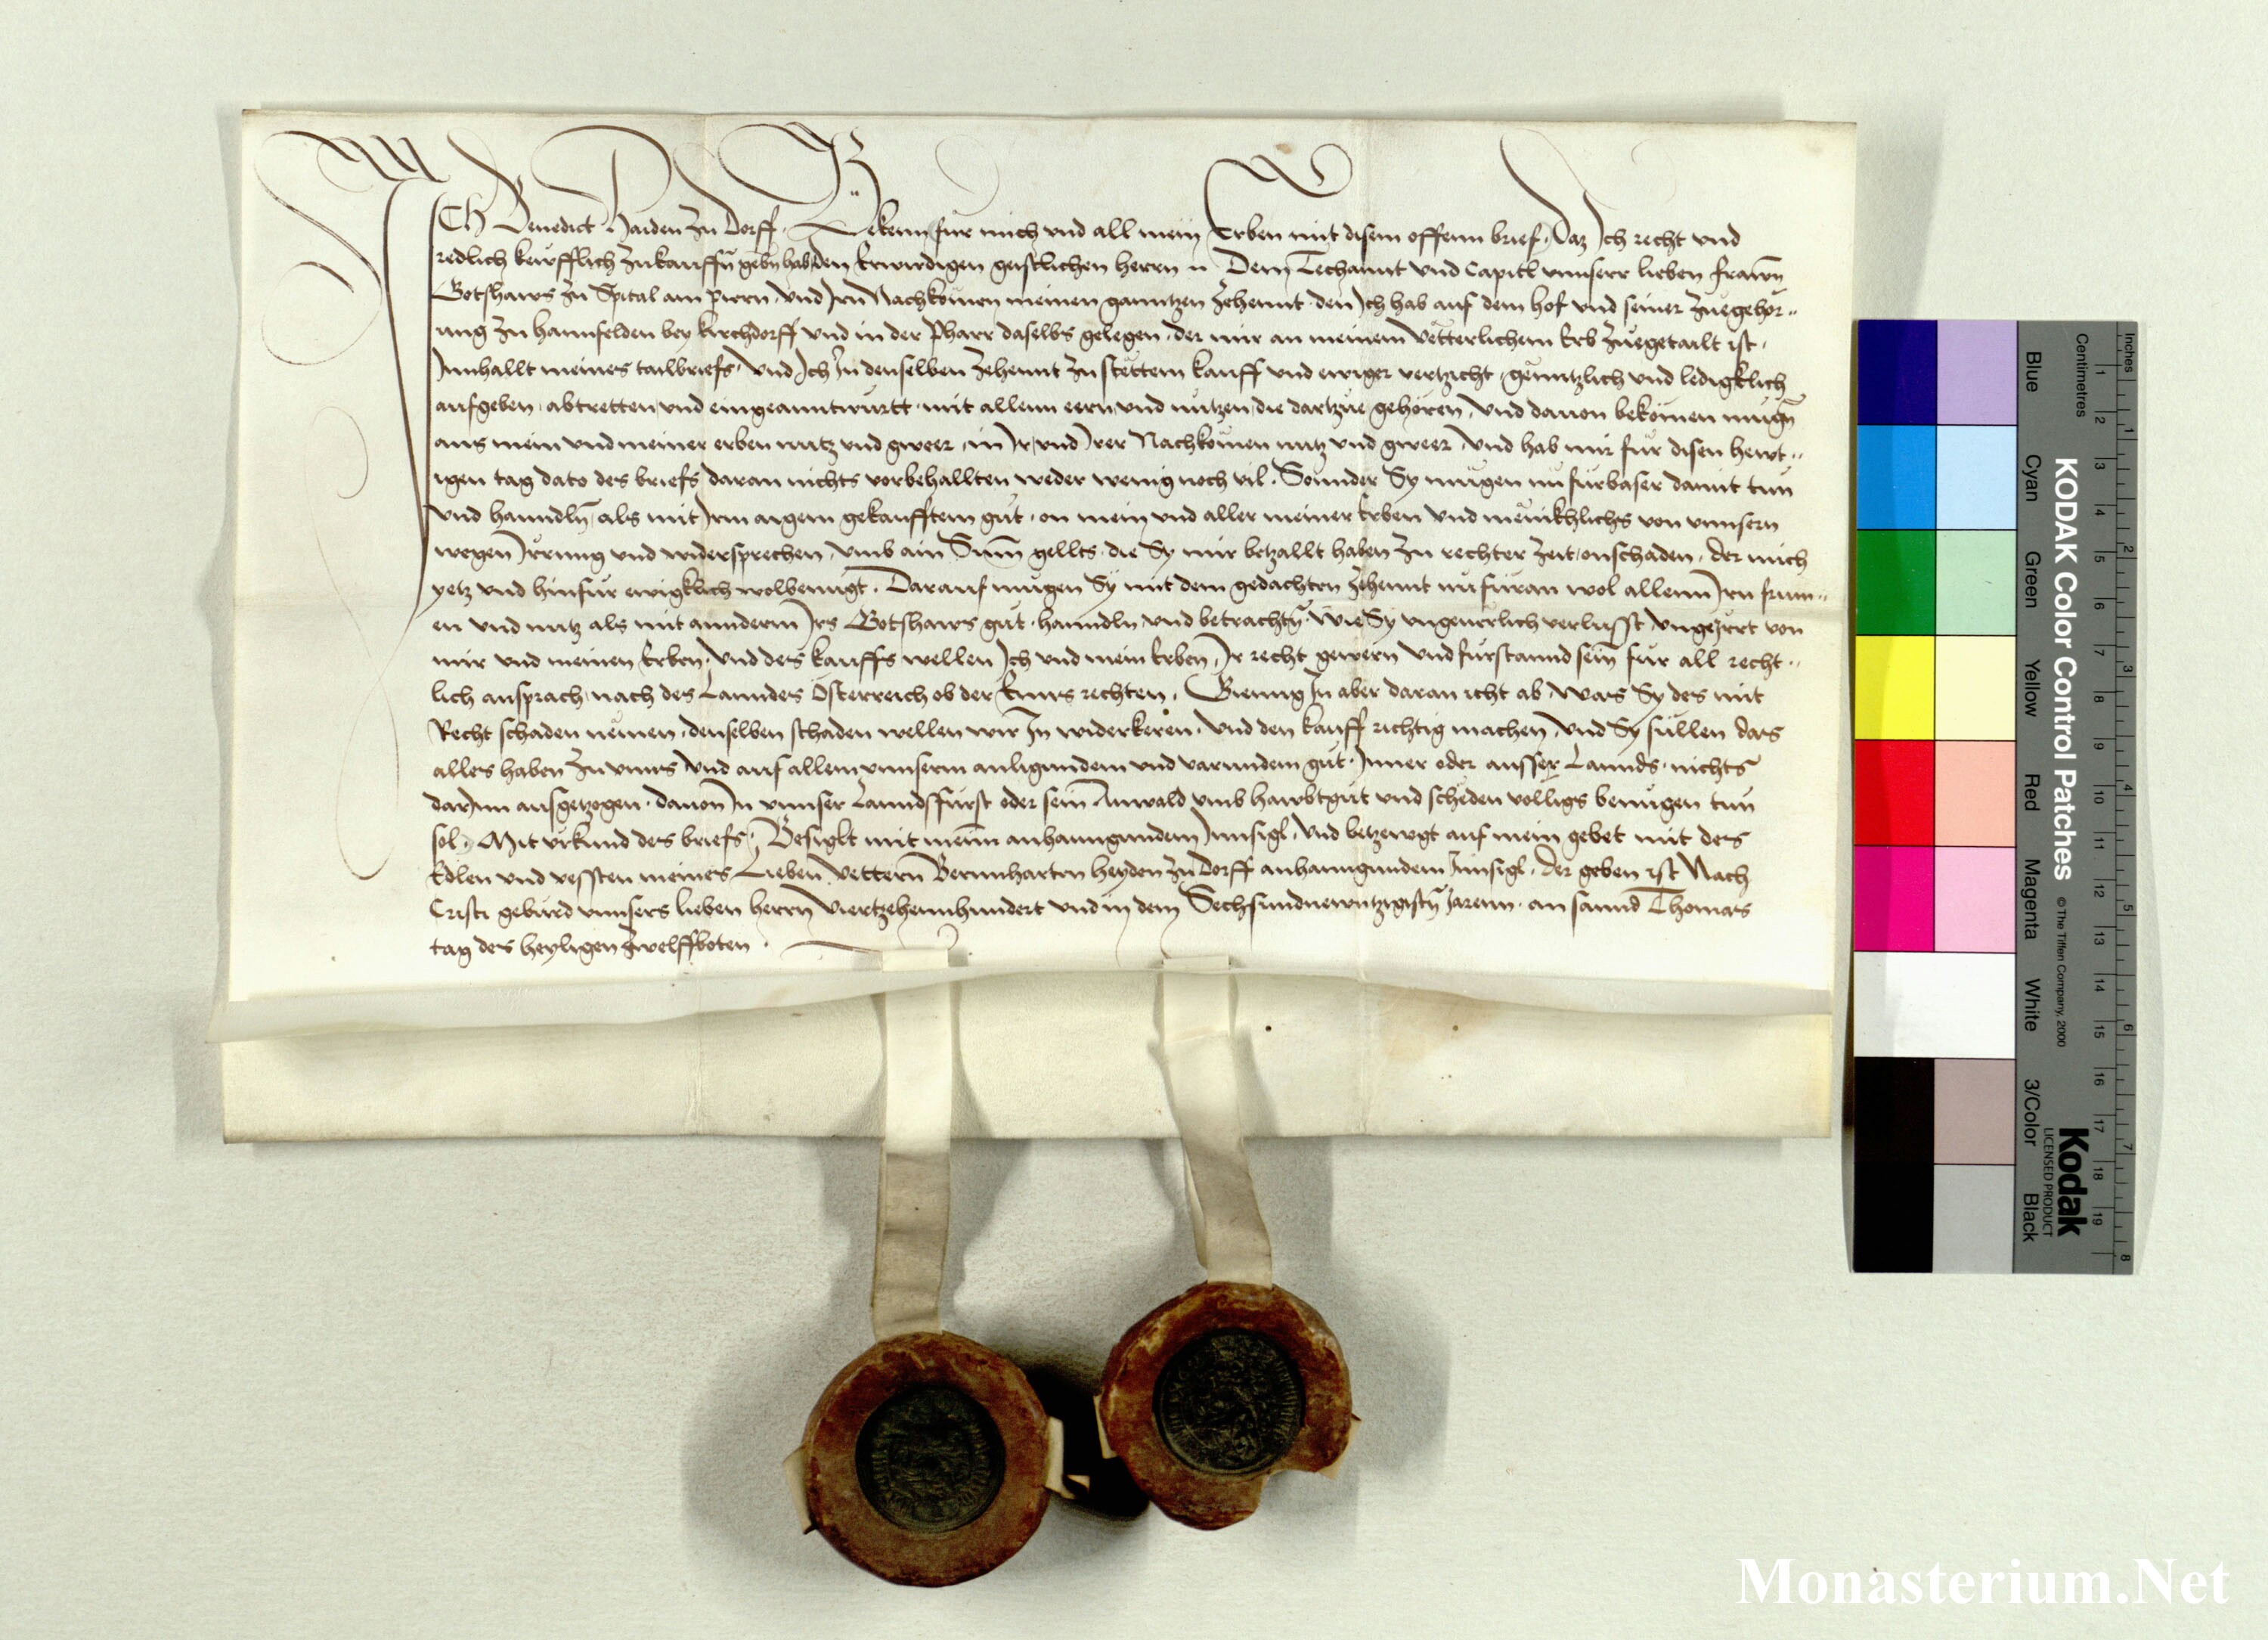 ICh Benedict Haiden zu Dorff, Bekenn für mich vnd all mein Erben mit disem offenn brief, Daz Ich recht vnd
redlich keufflich zukauffn gebn hab den Erwirdigen geistlichen herrn n Dem Techannt vnd Capitl vnnserr lieben frawn
Gotshaws zu Spital am pirrn, vnd Irn Nachkömen meinen ganntzen zehennt, den Ich hab auf dem hof vnd seiner zuegehör,,
ung zu hannfelden bey kirchdorff vnd in der Pharr daselbs gelegen, der mir an meinem vetterlichem Erb zuegetailt ist,
Innhallt meines tailbriefs, vnd Ich In denselben zehennt zu stettem kauff vnd ewiger vertzicht, genntzlich vnd ledigklich
aufgeben, abtretten, vnd eingeanntwurtt, mit allenn eern, vnd nutzen, die dartzue gehören, vnd dauon bekömen mugn
aus mein vnd meiner erben nutz vnd gweer, in Ir, vnd Irer Nachkömen nutz vnd gweer, vnd hab mir für disen hewt,,
igen tag dato des briefs daran nichts vorbehallten weder wenig noch vil, Sounder Sy mügen nu fürbaser damit tun
vnd hanndln, als mit Irm aigem gekaufftem güt, on mein vnd aller meiner Erben vnd menikhlichs von vnnsern
wegen Irrung vnd widersprechen, vmb ain Sum gellts, die Sy mir betzallt haben zu rechter zeit, onschaden, der mich
yetz vnd hinfür ewigklich wolbenügt, Darauf mügen Sy mit dem gedachten zehennt nu füran wol allenn Irn frum,,
en vnd nutz als mit annderm Irs Gotshaws güt, hanndln vnd betrachtn, wie Sy vngeuerlich verlusst, vngeirrt von
mir vnd meinen Erben, vnd des kauffs wellen Ich vnd mein Erben, Ir recht gewern vnd fürstannd sein für all recht,,
lich ansprach, nach des Lanndes Österreich ob der Enns rechten, Gienng In aber daran icht ab, was Sy des mit
Recht schaden nëmen, denselben schaden wellen wir In widerkeren, vnd den kauff richtig machen, vnd Sy sullen das
alles haben zu vnns vnd auf allem vnnserm anligundem vnd varundem güt, Inner oder ausser Lannds, nichts
darInn ausgetzogen, dauon In vnnser Lanndsfürst oder sein Anwald vmb hawbtgut vnd scheden volligs benügen tun
sol, Mit vrkund des briefs, Besiglt mit meim anhanngundem Innsigl, vnd betzewgt auf mein gebet mit des
Edlen vnd vessten meines Lieben vettern Bernnharten heyden zu Dorff anhanngundem Innsigl, der geben ist Nach
Cristi gebürd vnnsers lieben herrn viertzehennhundert vnd in dem Sechsundnewntzigistn Jarenn, an sannd Thomas
tag des heyligen zwelffboten,
Inches
Centimetres
KODAK Color Control Patches
© The Tiffen Company, 2000
Kodak
LICENSED PRODUCT
Blue
Cyan
Green
Yellow
Red
Magenta
White
3/Color
Black
1 2 3 4 5 6 7 8 9 10 11 12 13 14 15 16 17 18 19
1 2 3 4 5 6 7 8
Monasterium.Net